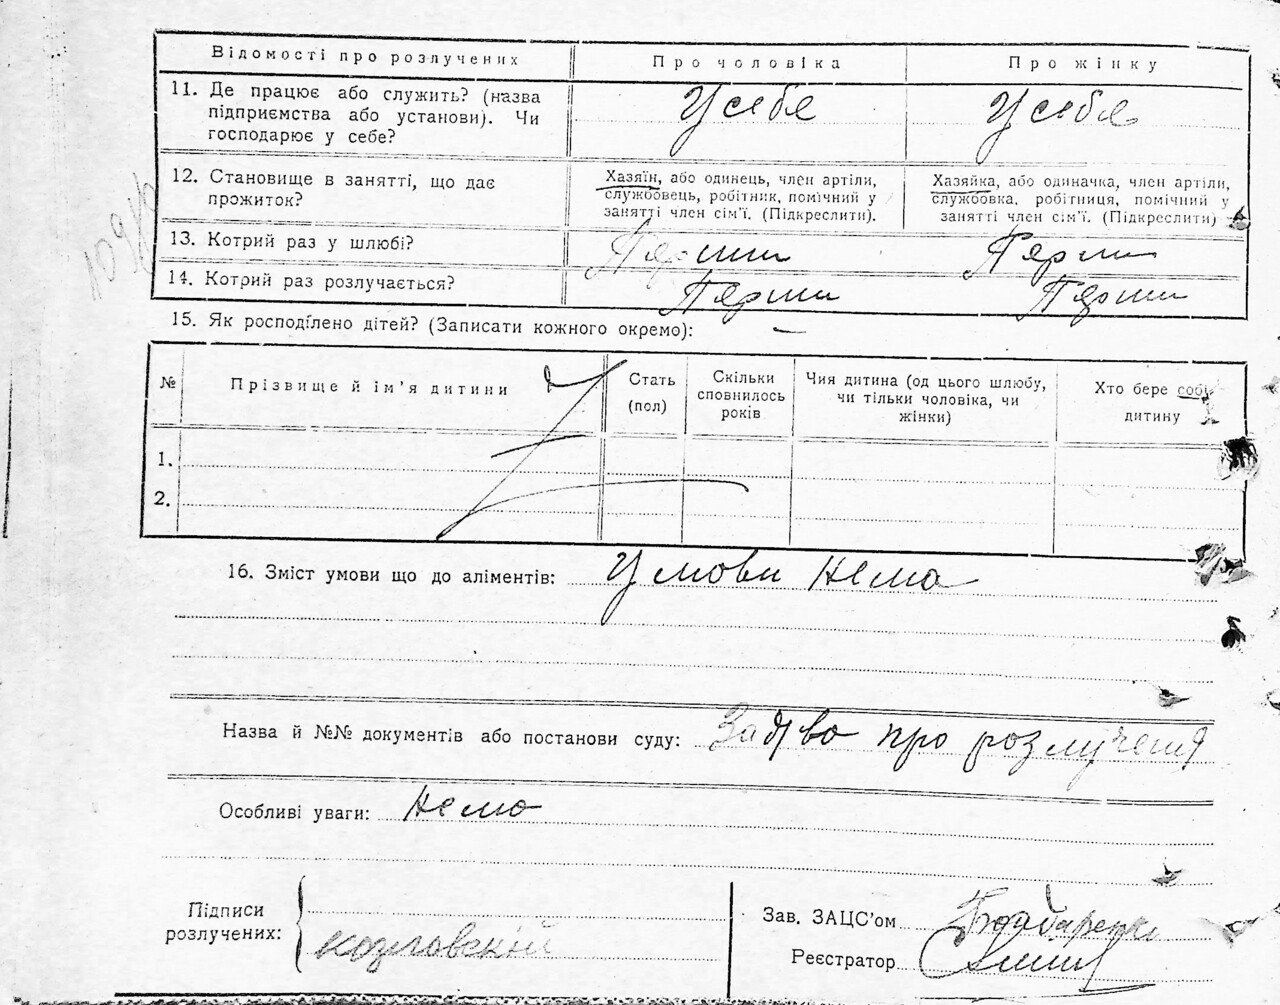 Відомості про розлучених
Про чоловіка
Про жінку
11. Де працює або служить? (назва
підприємства або установи). Чи
господарює у себе?
У себе
У себе
12. Становище в занятті, що дає
прожиток?
Хазяїн, або одинець, член артіли,
службовець, робітник, помічний у
занятті член сім'ї. (Підкреслити).
Хазяйка, або одиначка, член артіли,
службовка, робітниця, помічний у
занятті член сім'ї. (Підкреслити)
13. Котрий раз у шлюбі?
14. Котрий раз розлучається?
15. Як росподілено дітей? (Записати кожного окремо): —
№
Прізвище й ім'я дитини
Стать
(пол)
Скільки
сповнилось
років
Чия дитина (од цього шлюбу,
чи тільки чоловіка, чи
жінки)
Хто бере собі
дитину
1.
2.
16. Зміст умови що до аліментів: Умови нема
Назва й №№ документів або постанови суду: Заява про розлученя
Особливі уваги: нема
Підписи
розлучених:
козловскій
Зав. ЗАЦС'ом
Реєстратор